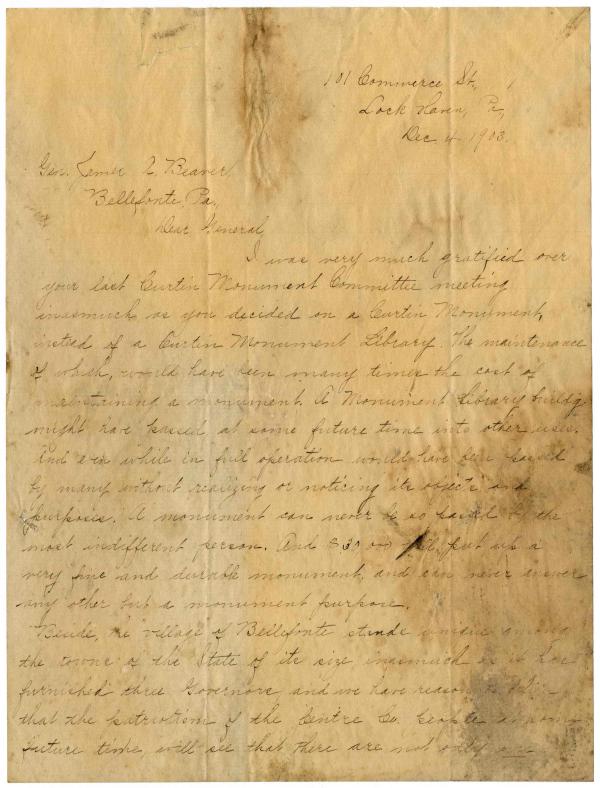 101 Commerce St,
Lock Haven, Pa,
Dec 4 1903.
Gen. James A. Beaver,
Bellefonte, Pa,
Dear General
I was very much gratified over
your last Curtin Monument Committee meeting
inasmuch as you decided on a Curtin Monument,
instead of a Curtin Monument Library. The maintenance
of which, would have been many times the cost of
maintaining a monument. A Monument Library buildg
might have passed at some future time into other uses.
And even while in full operation would have been passed
by many without realizing or noticing its objects and
purposes. A monument can never be so passed by the
most indifferent person. And $30 000 will put up a
very fine and durable monument, and can never answer
any other but a monument purpose.
Beside, the village of Bellefonte stands unique among
the towns of the State of its size, inasmuch as it has
furnished three Governors, and we have reason to
that the patriotism of the Centre Co. people at some
future time, will see that there are not only one